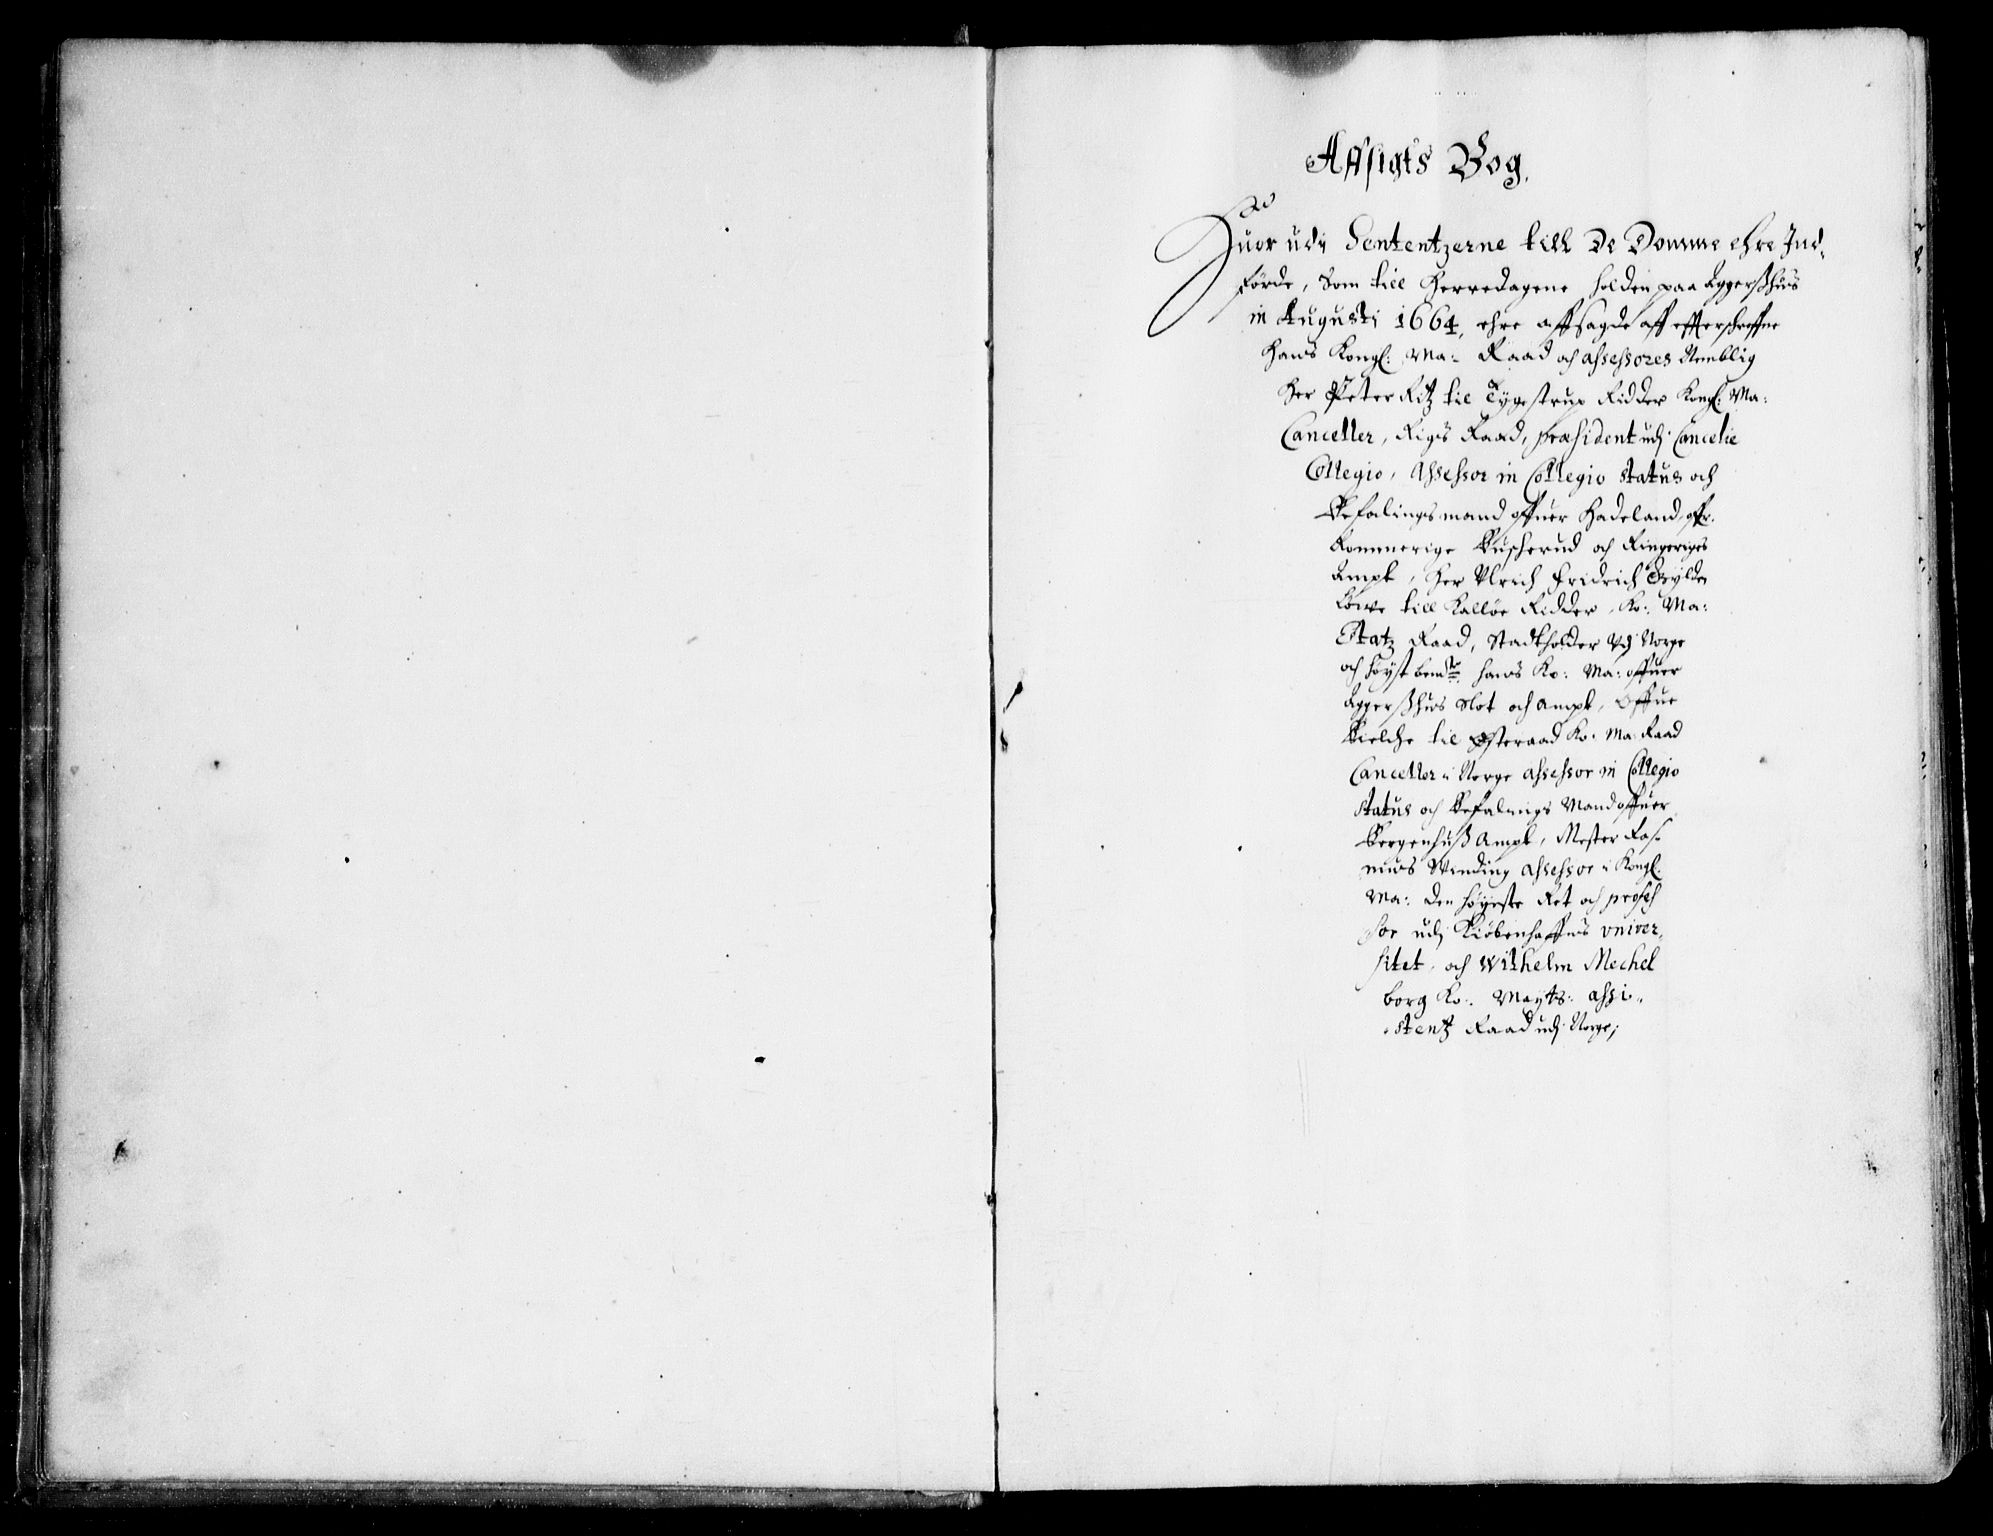 Affsigts Bog.
Huor udi Sententzerne till De Domme ehre Ind-
førde, Som till Herredagene holden paa Aggerßhuus
in Augusti 1664, ehre affsagde aff effterschreffne
Hans Kongl: Ma: Raad och Assessores Nemblig
Her Peter Retz til Tygestrup Ridder Kongl: Ma:
Canceller, Rigs Raad, Præsident udj Cancelie
Collegio, Assessor in Collegio status och
Befalings mand offuer Hadeland, offr.
Rommerige Buscherud och Ringeriges
Ampt, Her Ulrich Fridrich Gylden
Löwe till Kalløe Ridder, Ko: Ma:
Etatz Raad, Stadtholder Vdj Norge
och høyst bemte hans Ko: Ma: offuer
Aggerßhuus Slot och Ampt, Offue
Bielche til Østeraad Ko: Ma: Raad
Canceller i Norge Assessor in Collegio
status och Befalings Mand offuer
Bergenhuß Ampt, Mester Ras-
muus Winding Assessor i Kongl.
Ma: Den høyeste Ret och profes
sor udj Kiøbenhaffns Univer-
sitet, och Wilhelm Mechel
borg Ko: Mayts: Assi-
stentz Raad udj Norge;